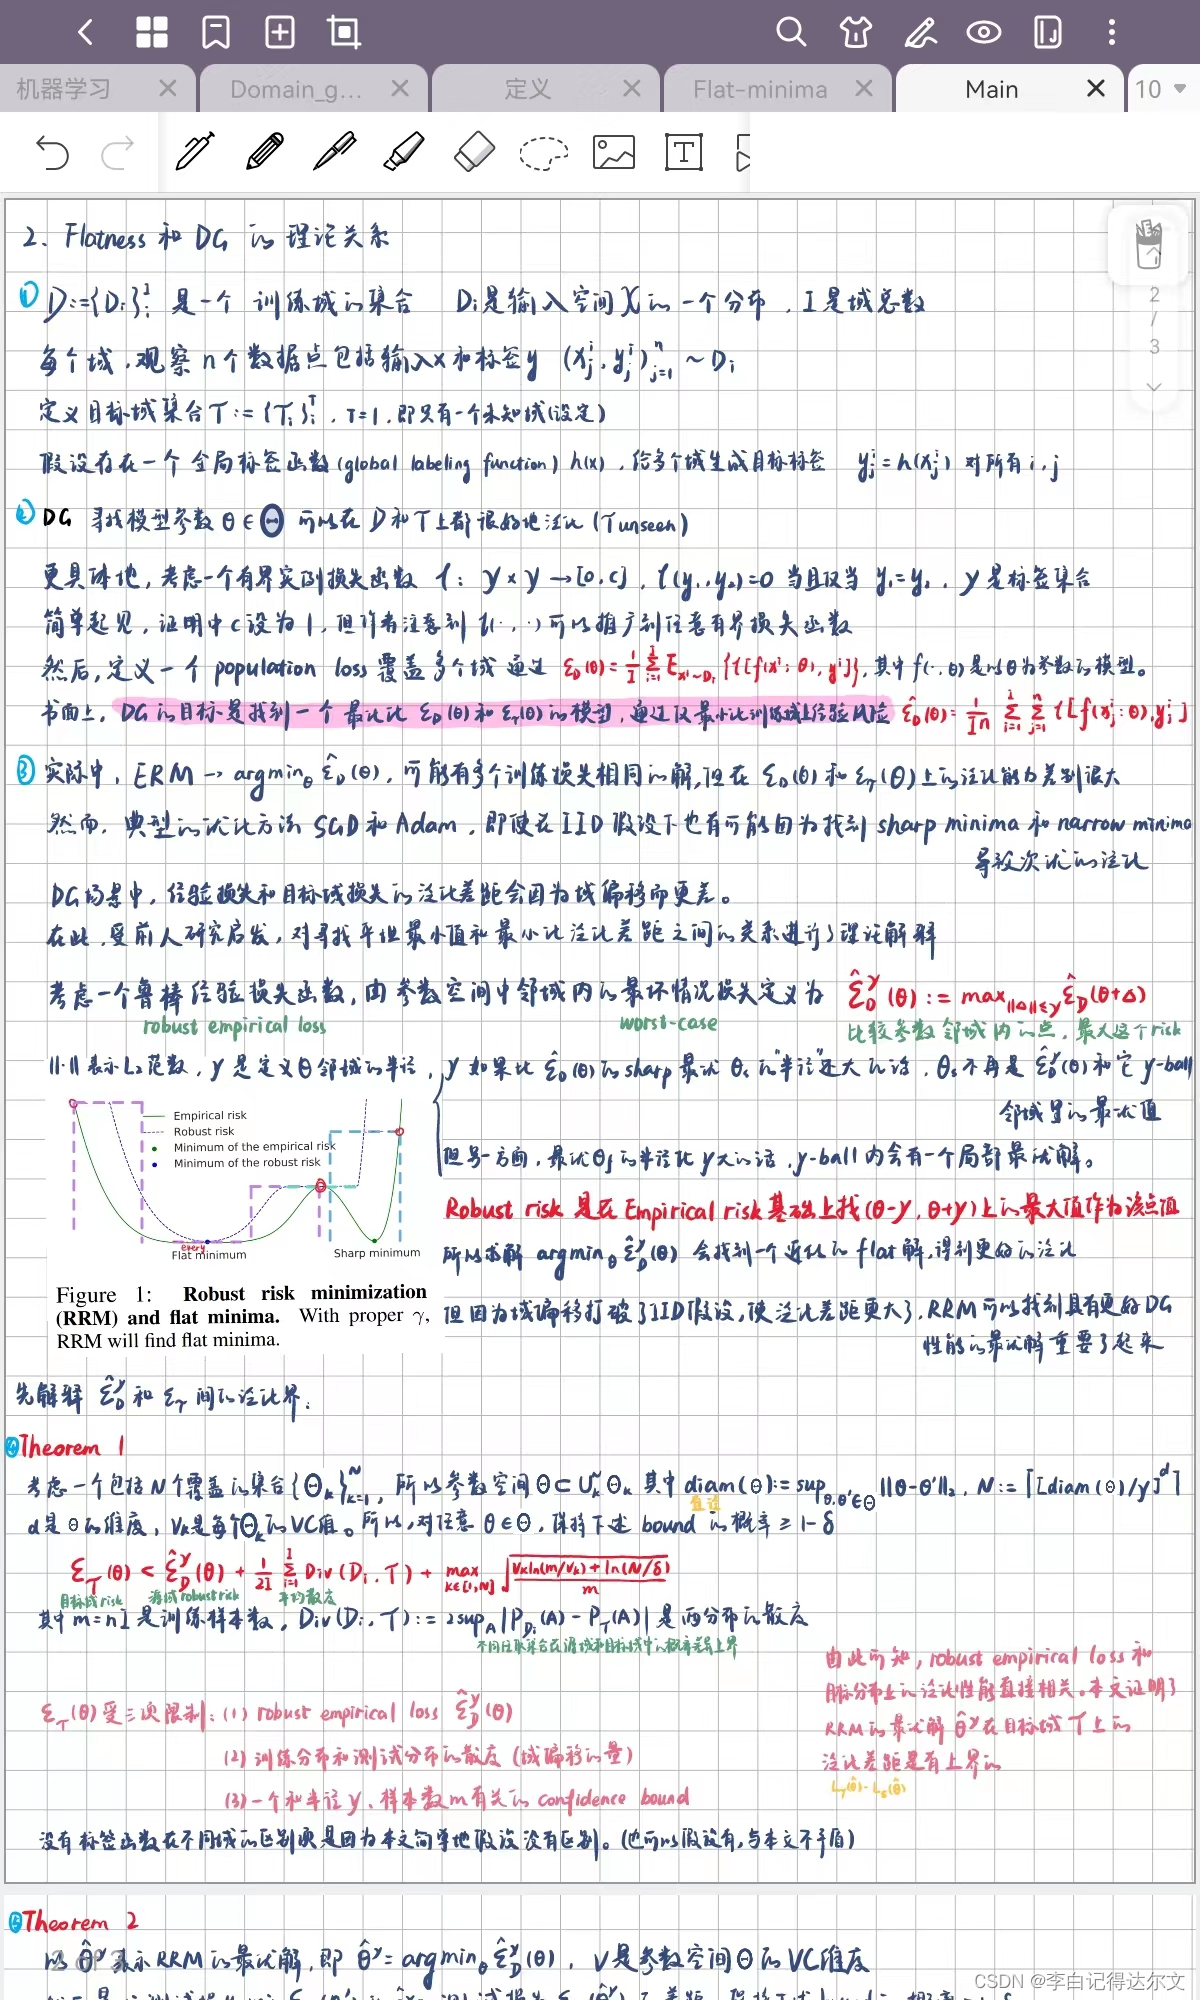 机器学习
Domain_g...
定义
Flat-minima
Main
10
2
/
3
2、Flatness 和 DG 的理论关系
① D:={Di}ᴵᵢ 是一个 训练域的集合 Di是输入空间X的一个分布，I是域总数
每个域，观察n个数据点包括输入x和标签y (xⱼⁱ, yⱼⁱ)ⁿⱼ₌₁ ~ Di
定义目标域集合T:={Ti}ᵢᵀ，T=1，即只有一个未知域(设定)
假设存在一个全局标签函数(global labeling function) h(x)，给多个域生成目标标签 yⱼⁱ=h(xⱼⁱ) 对所有i,j
② DG 寻找模型参数 θ∈Θ 可以在 D和T上都很好地泛化(T unseen)
更具体地，考虑一个有界实例损失函数 ℓ: y×y→[0,c]，ℓ(y₁,y₂)=0 当且仅当 y₁=y₂，y是标签集合
简单起见，证明中c设为1，但作者注意到 ℓ(·,·)可以推广到任意有界损失函数
然后，定义一个 population loss 覆盖多个域 通过 ε_D(θ)=1/I Σᴵᵢ₌₁ E_{xⁱ~Di}{ℓ[f(xⁱ;θ),yⁱ]}，其中f(·,θ)是以θ为参数的模型。
书面上，DG的目标是找到一个最优化 ε_D(θ)和ε_T(θ)的模型，通过仅最小化训练域上经验风险 ε̂_D(θ)=1/In Σᴵᵢ₌₁ Σⁿⱼ₌₁ ℓ[f(xⱼⁱ;θ),yⱼⁱ]
③ 实际中，ERM → argmin_θ ε̂_D(θ)，可能有多个训练损失相同的解，但在 ε_D(θ)和ε_T(θ)上的泛化能力差别很大
然而，典型的优化方法 SGD和Adam，即使在IID假设下也有可能因为找到 sharp minima 和 narrow minima
导致次优的泛化
DG场景中，经验损失和目标域损失的泛化差距会因为域偏移而更差。
在此，受前人研究启发，对寻找平坦最小值和最小化泛化差距之间的关系进行了理论解释
考虑一个鲁棒经验损失函数，由参数空间中邻域内的最坏情况损失定义为 ε̂_D^γ(θ):=max_{||Δ||≤γ} ε̂_D(θ+Δ)
robust empirical loss worst-case 比较参数邻域内的点，最大这个risk
||·||表示L₂范数，γ是定义θ邻域的半径，
γ如果比 ε̂_D(θ)的sharp最优 θs的"半径"还大的话，θs不再是 ε̂_D^γ(θ)和它γ-ball
邻域里的最优值
但另一方面，最优θf的半径比γ大的话，γ-ball内会有一个局部最优解。
Robust risk 是在 Empirical risk 基础上找(θ-γ,θ+γ)上的最大值作为该点值
所以求解 argmin_θ ε̂_D^γ(θ) 会找到一个近似的flat解，得到更好的泛化
但因为域偏移打破了IID假设，使泛化差距更大了，RRM可以找到具有更好DG
性能的最优解重要了起来
Empirical risk
Robust risk
Minimum of the empirical risk
Minimum of the robust risk
Flat minimum
Sharp minimum
Figure 1: Robust risk minimization
(RRM) and flat minima. With proper γ,
RRM will find flat minima.
先解释 ε̂_D^γ 和 ε_T 间的泛化界:
④Theorem 1
考虑一个包括N个覆盖的集合{Θk}ᴺₖ₌₁，所以参数空间 Θ⊂∪ᴺₖΘk 其中 diam(Θ):=sup_{θ,θ'∈Θ}||θ-θ'||₂，N:=⌈[diam(Θ)/γ]ᵈ⌉
直径
d是Θ的维度，Vk是每个Θk的VC值。所以，对任意 θ∈Θ，保持下述 bound 的概率≥1-δ
ε_T(θ) < ε̂_D^γ(θ) + 1/2I Σᴵᵢ₌₁ Div(Di,T) + max_{k∈[1,N]} √((Vk ln(m/Vk)+ln(N/δ))/m)
目标域risk 源域robust risk 平均散度
其中 m=nI是训练样本数，Div(Di,T):=2sup_A|P_Di(A)-P_T(A)|是两分布的散度
由此可知，robust empirical loss和
目标分布上的泛化性能直接相关。本文证明了
RRM的最优解 θ̂^γ在目标域T上的
泛化差距是有上界的
ε_T(θ)受三项限制：(1) robust empirical loss ε̂_D^γ(θ)
(2) 训练分布和测试分布的散度 (域偏移的量)
(3) 一个和半径γ、样本数m有关的 confidence bound
没有标签函数在不同域的区别项是因为本文简单地假设没有区别。(也可以假设有，与本文不矛盾)
⑤Theorem 2
以 θ̂^γ 表示RRM的最优解，即 θ̂^γ=argmin_θ ε̂_D^γ(θ)，V是参数空间Θ的VC维度
CSDN @李白记得达尔文